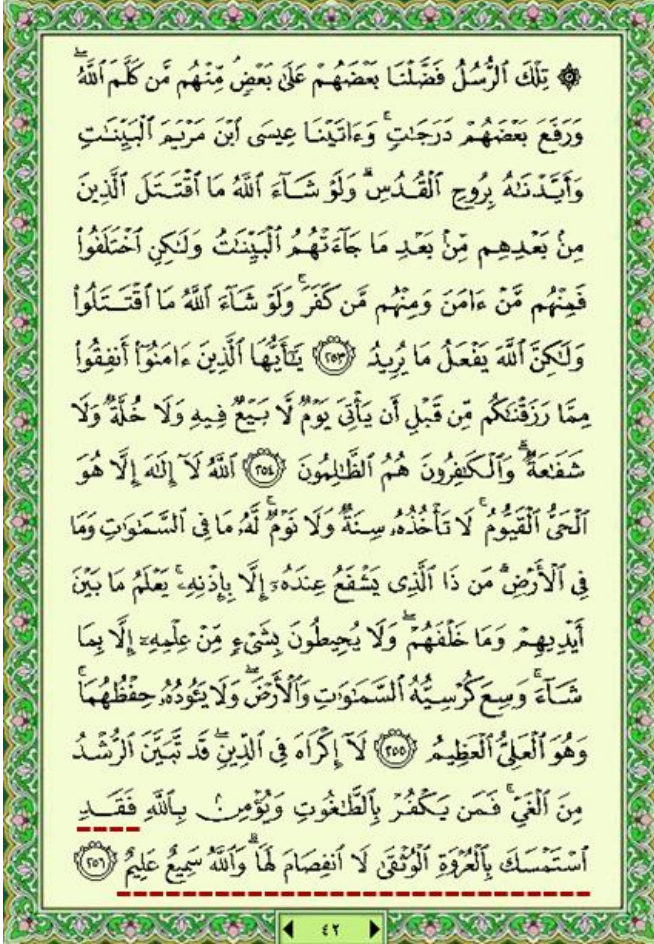 ۞ تِلْكَ ٱلرُّسُلُ فَضَّلْنَا بَعْضَهُمْ عَلَىٰ بَعْضٍ ۘ مِّنْهُم مَّن كَلَّمَ ٱللَّهُ ۖ
وَرَفَعَ بَعْضَهُمْ دَرَجَٰتٍ ۚ وَءَاتَيْنَا عِيسَى ٱبْنَ مَرْيَمَ ٱلْبَيِّنَٰتِ
وَأَيَّدْنَٰهُ بِرُوحِ ٱلْقُدُسِ ۗ وَلَوْ شَآءَ ٱللَّهُ مَا ٱقْتَتَلَ ٱلَّذِينَ
مِنۢ بَعْدِهِم مِّنۢ بَعْدِ مَا جَآءَتْهُمُ ٱلْبَيِّنَٰتُ وَلَٰكِنِ ٱخْتَلَفُوا۟
فَمِنْهُم مَّنْ ءَامَنَ وَمِنْهُم مَّن كَفَرَ ۚ وَلَوْ شَآءَ ٱللَّهُ مَا ٱقْتَتَلُوا۟
وَلَٰكِنَّ ٱللَّهَ يَفْعَلُ مَا يُرِيدُ ۝٢٥٣ يَٰٓأَيُّهَا ٱلَّذِينَ ءَامَنُوٓا۟ أَنفِقُوا۟
مِمَّا رَزَقْنَٰكُم مِّن قَبْلِ أَن يَأْتِىَ يَوْمٌ لَّا بَيْعٌ فِيهِ وَلَا خُلَّةٌ وَلَا
شَفَٰعَةٌ ۗ وَٱلْكَٰفِرُونَ هُمُ ٱلظَّٰلِمُونَ ۝٢٥٤ ٱللَّهُ لَآ إِلَٰهَ إِلَّا هُوَ
ٱلْحَىُّ ٱلْقَيُّومُ ۚ لَا تَأْخُذُهُۥ سِنَةٌ وَلَا نَوْمٌ ۚ لَّهُۥ مَا فِى ٱلسَّمَٰوَٰتِ وَمَا
فِى ٱلْأَرْضِ ۗ مَن ذَا ٱلَّذِى يَشْفَعُ عِندَهُۥٓ إِلَّا بِإِذْنِهِۦ ۚ يَعْلَمُ مَا بَيْنَ
أَيْدِيهِمْ وَمَا خَلْفَهُمْ ۖ وَلَا يُحِيطُونَ بِشَىْءٍ مِّنْ عِلْمِهِۦٓ إِلَّا بِمَا
شَآءَ ۚ وَسِعَ كُرْسِيُّهُ ٱلسَّمَٰوَٰتِ وَٱلْأَرْضَ ۖ وَلَا يَـُٔودُهُۥ حِفْظُهُمَا ۚ
وَهُوَ ٱلْعَلِىُّ ٱلْعَظِيمُ ۝٢٥٥ لَآ إِكْرَاهَ فِى ٱلدِّينِ ۖ قَد تَّبَيَّنَ ٱلرُّشْدُ
مِنَ ٱلْغَىِّ ۚ فَمَن يَكْفُرْ بِٱلطَّٰغُوتِ وَيُؤْمِنۢ بِٱللَّهِ فَقَدِ
ٱسْتَمْسَكَ بِٱلْعُرْوَةِ ٱلْوُثْقَىٰ لَا ٱنفِصَامَ لَهَا ۗ وَٱللَّهُ سَمِيعٌ عَلِيمٌ ۝٢٥٦
٤٢